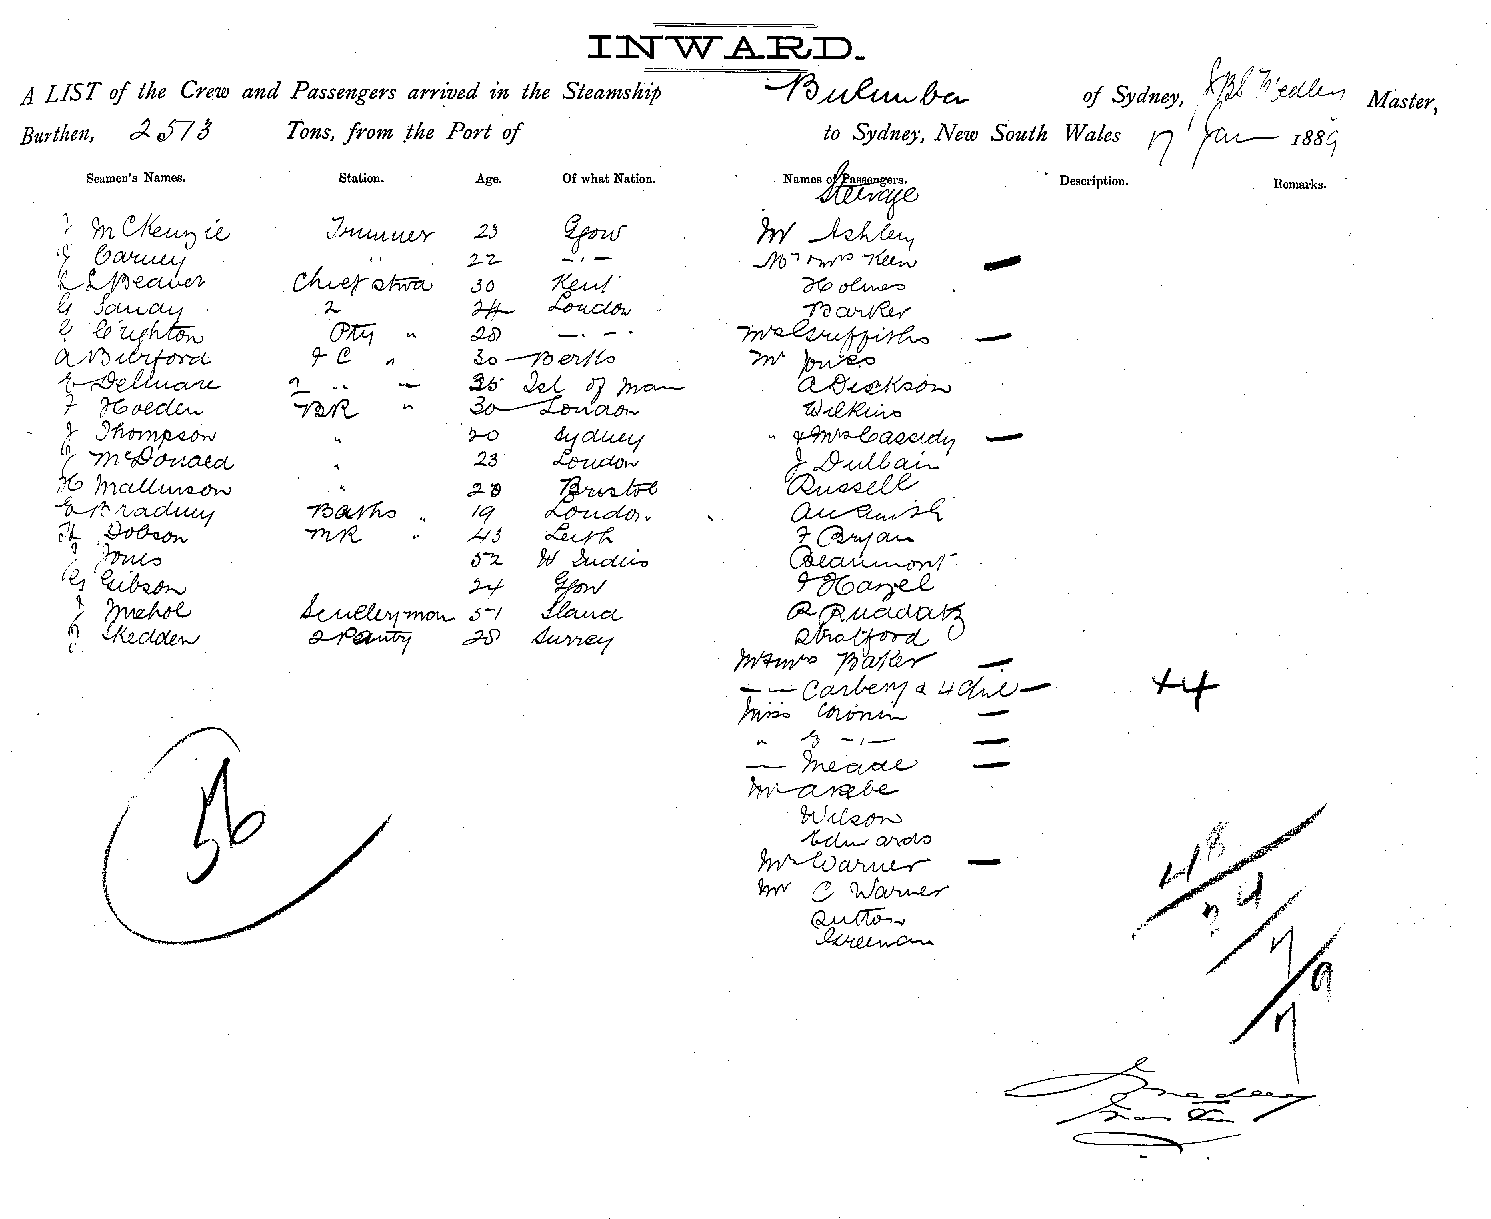 INWARD.
A LIST of the Crew and Passengers arrived in the Steamship Bulimba of Sydney, Medley Master,
Burthen, 2573 Tons, from the Port of to Sydney, New South Wales 17 Jan 1889
Seamen's Names. Station. Age. Of what Nation. Names of Passengers. Description. Remarks.
Steerage
J McKenzie Trimmer 23 Ggow Mr Ashley
J Carney " 22 -"- Mr & Mrs Keen —
Beaver Chief Stwd 30 Kent Holmes
G Sanday 2 24 London Barker
G Crighton Ptry " 28 -"- Mrs Griffiths —
A Burford 1 C " 30 Berks Mr Jones
E Dellmare 2 " " 35 Isl of Man A Dickson
F Holden BR " 30 London Wilkins
J Thompson " 20 Sydney " & Mrs Cassidy —
J McDonald " 23 London J Dulbain
H Mallinson " 28 Bristol Russell
E Bradney Baths " 19 London
H Dobson MR " 43 Leith F Bryan
J Jones 52 W Indies Beaumont
G Gibson 24 Ggow F Hazel
J Nichol Scullery man 51 R Ruadatz
J Skedden 2 Pantry 28 Surrey Stratford
Mr & Mrs Baker —
— — Carbery & 4 Chil — +4
Miss Cronin —
" G -"- —
— Meade —
Mr
Wilson
Edwards
Mrs Warner —
Mr C Warner
Sutton
Greenan
56
48
24
7
9
7
Medley
Master